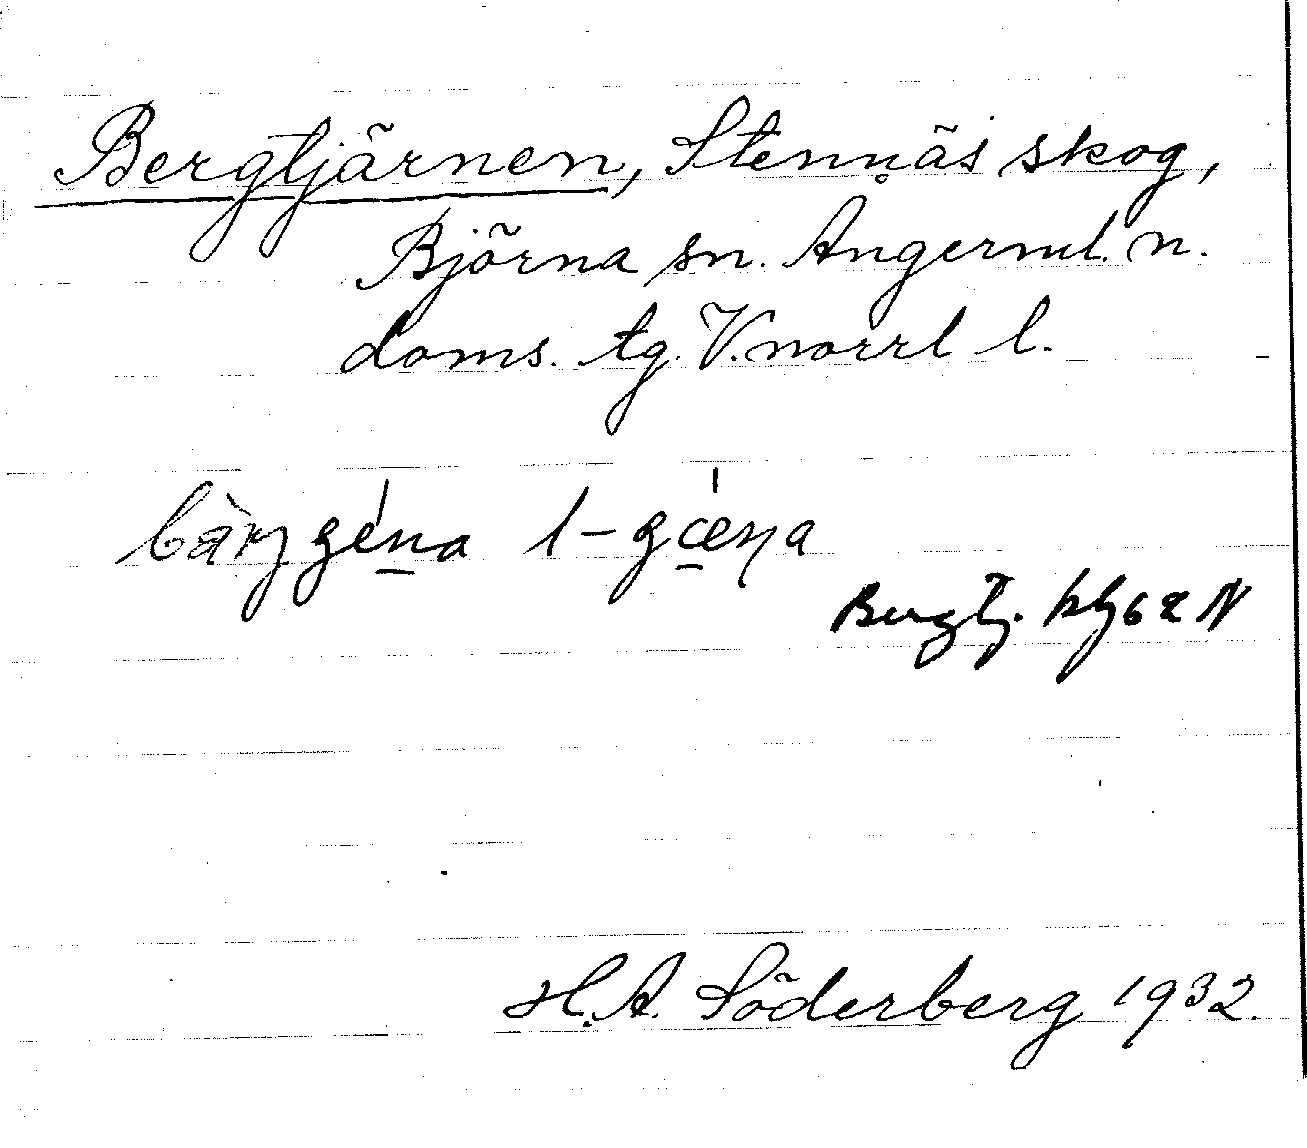 Bergtjärnen, Stennäs skog,
Björna sn. Ångerml. n.
doms. tg. V.norrl l.
l-gœŋa
Bergtj. blj 62 N
H.A. Söderberg 1932.